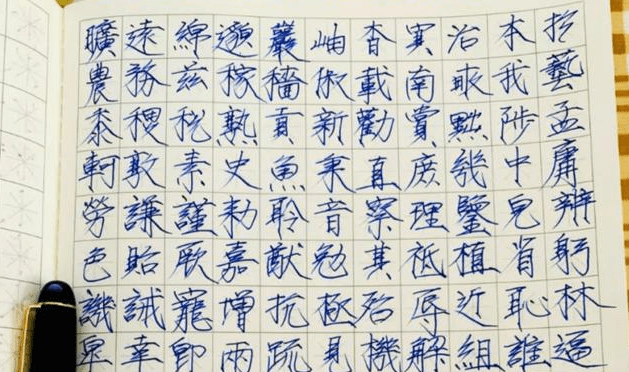 曠遠綿邈巖岫杳冥治本於
農務茲稼穡俶載南畝我藝
黍稷稅熟貢新勸賞黜陟孟
軻敦素史魚秉直庶幾中庸
勞謙謹勅聆音察理鑒皃辨
色貽厥嘉猷勉其祗植省躬
譏誡寵增抗極殆辱近恥林
皋幸即兩疏見機解組誰逼